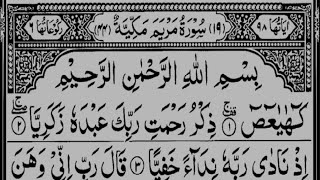 اٰیَاتُهَا ٩٨ (١٩) سُوْرَةُ مَرْیَمَ مَکِّیَّةٌ (٤٤) رُکُوْعَاتُهَا ٦
بِسْمِ اللّٰهِ الرَّحْمٰنِ الرَّحِیْمِ
کٓهٰیٰعٓصٓ ۚ ﴿١﴾ ذِکْرُ رَحْمَتِ رَبِّكَ عَبْدَهٗ زَکَرِیَّا ﴿٢﴾
اِذْ نَادٰی رَبَّهٗ نِدَآءً خَفِیًّا ﴿٣﴾ قَالَ رَبِّ اِنِّیْ وَهَنَ